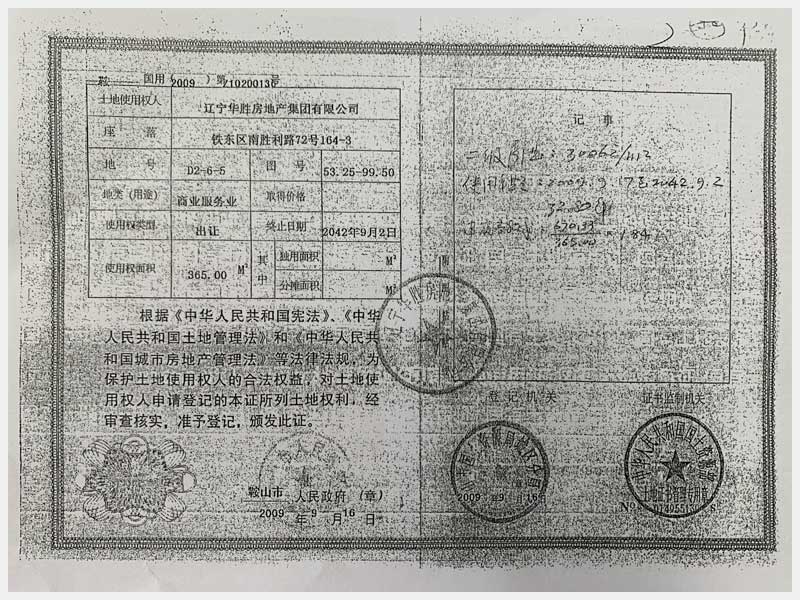 鞍 国用（2009）第210200136号
土地使用权人 辽宁华胜房地产集团有限公司
座 落 铁东区南胜利路72号164-3
地 号 D2-6-5 图 号 53.25-99.50
地类（用途） 商业服务业 取得价格
使用权类型 出让 终止日期 2042年9月2日
使用权面积 365.00 M² 其中 独用面积 M²
分摊面积 M²
根据《中华人民共和国宪法》、《中华
人民共和国土地管理法》和《中华人民共
和国城市房地产管理法》等法律法规，为
保护土地使用权人的合法权益，对土地使
用权人申请登记的本证所列土地权利，经
审查核实，准予登记，颁发此证。
鞍山市 人民政府（章）
2009 年 9 月 16 日
记 事
2042.9.2
670.33
365.00
登 记 机 关
证书监制机关
2009 年 9 月 16
土地证书管理专用章